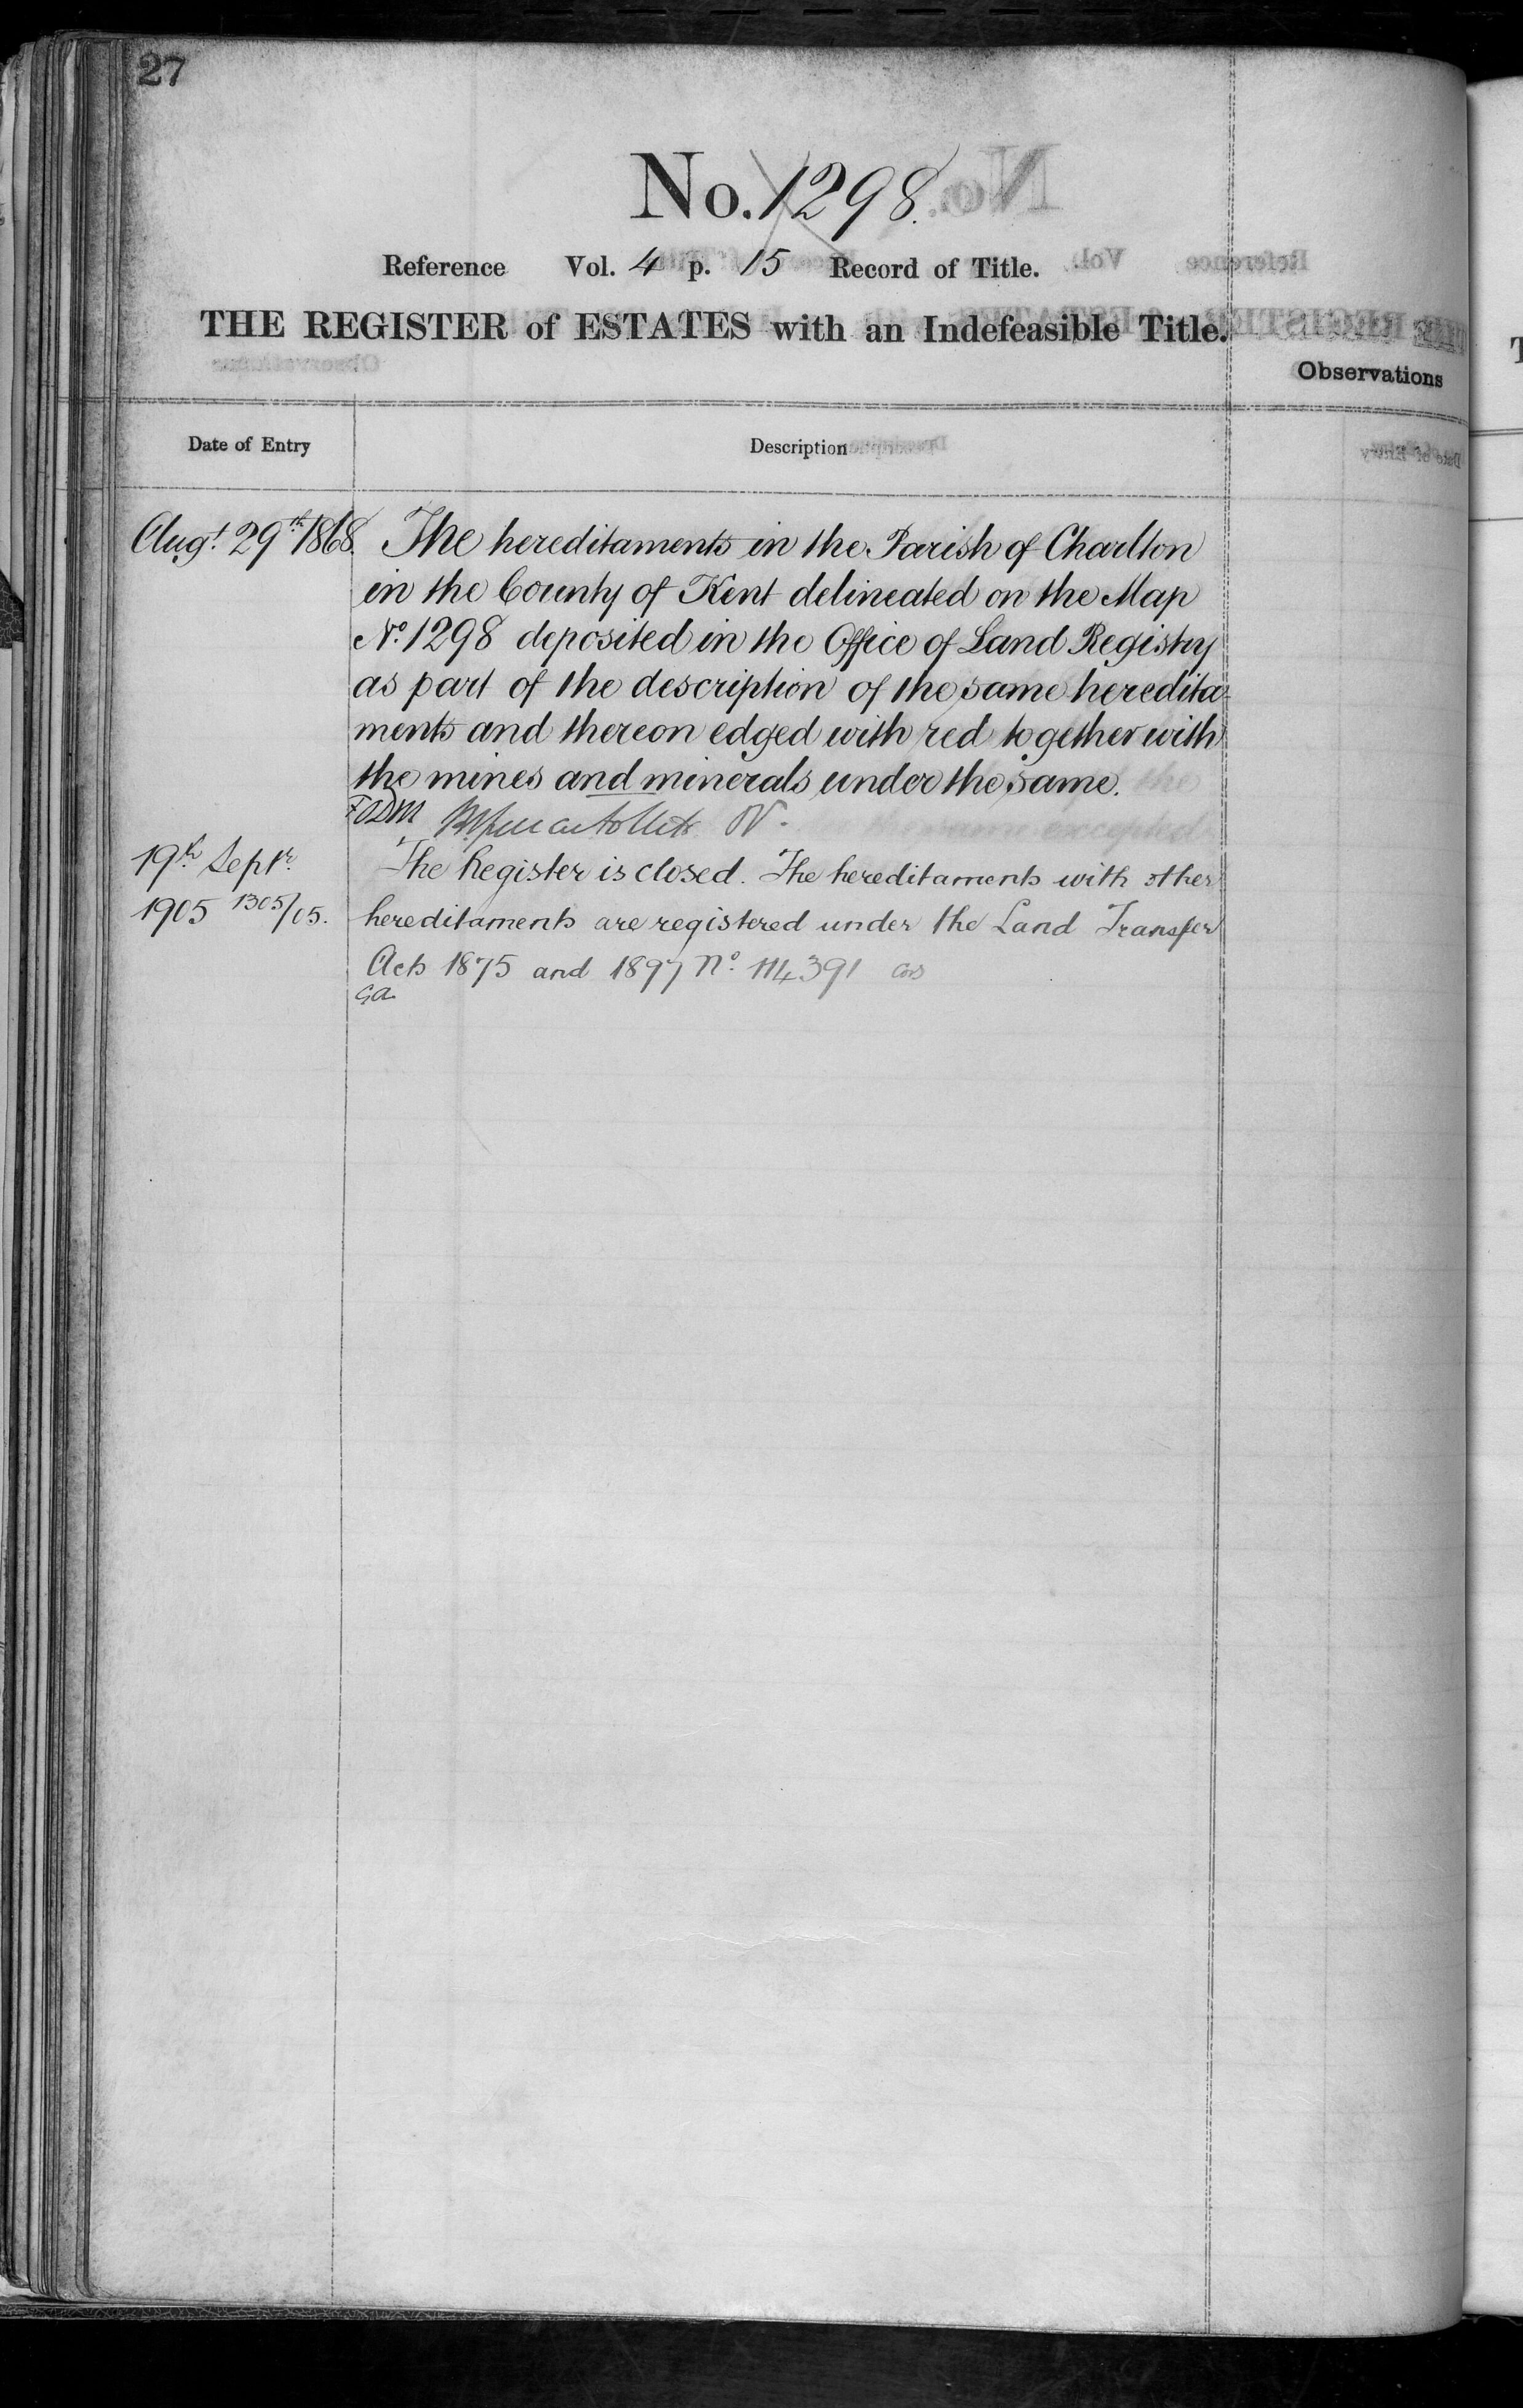 27
No. 1298.
Reference Vol. 4 p. 15 Record of Title.
THE REGISTER of ESTATES with an Indefeasible Title.
Observations
Date of Entry Description
Augt. 29th 1868. The hereditaments in the Parish of Charlton
in the County of Kent delineated on the Map
No. 1298 deposited in the Office of Land Registry
as part of the description of the same heredita-
ments and thereon edged with red together with
the mines and minerals under the same.
19th Septr. The Register is closed. The hereditaments with other
1905 1305/05. hereditaments are registered under the Land Transfer
Acts 1875 and 1897 No. 114391
GA